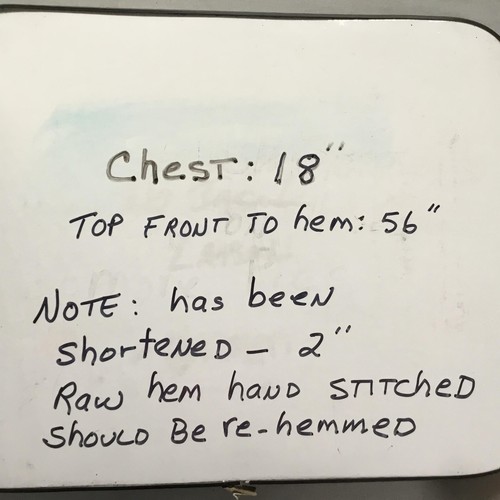 Chest: 18"
TOP FRONT TO hem: 56"
NOTE: has been
shorteNED - 2"
Raw hem haND STITCHED
SHOULD Be re-hemmeD